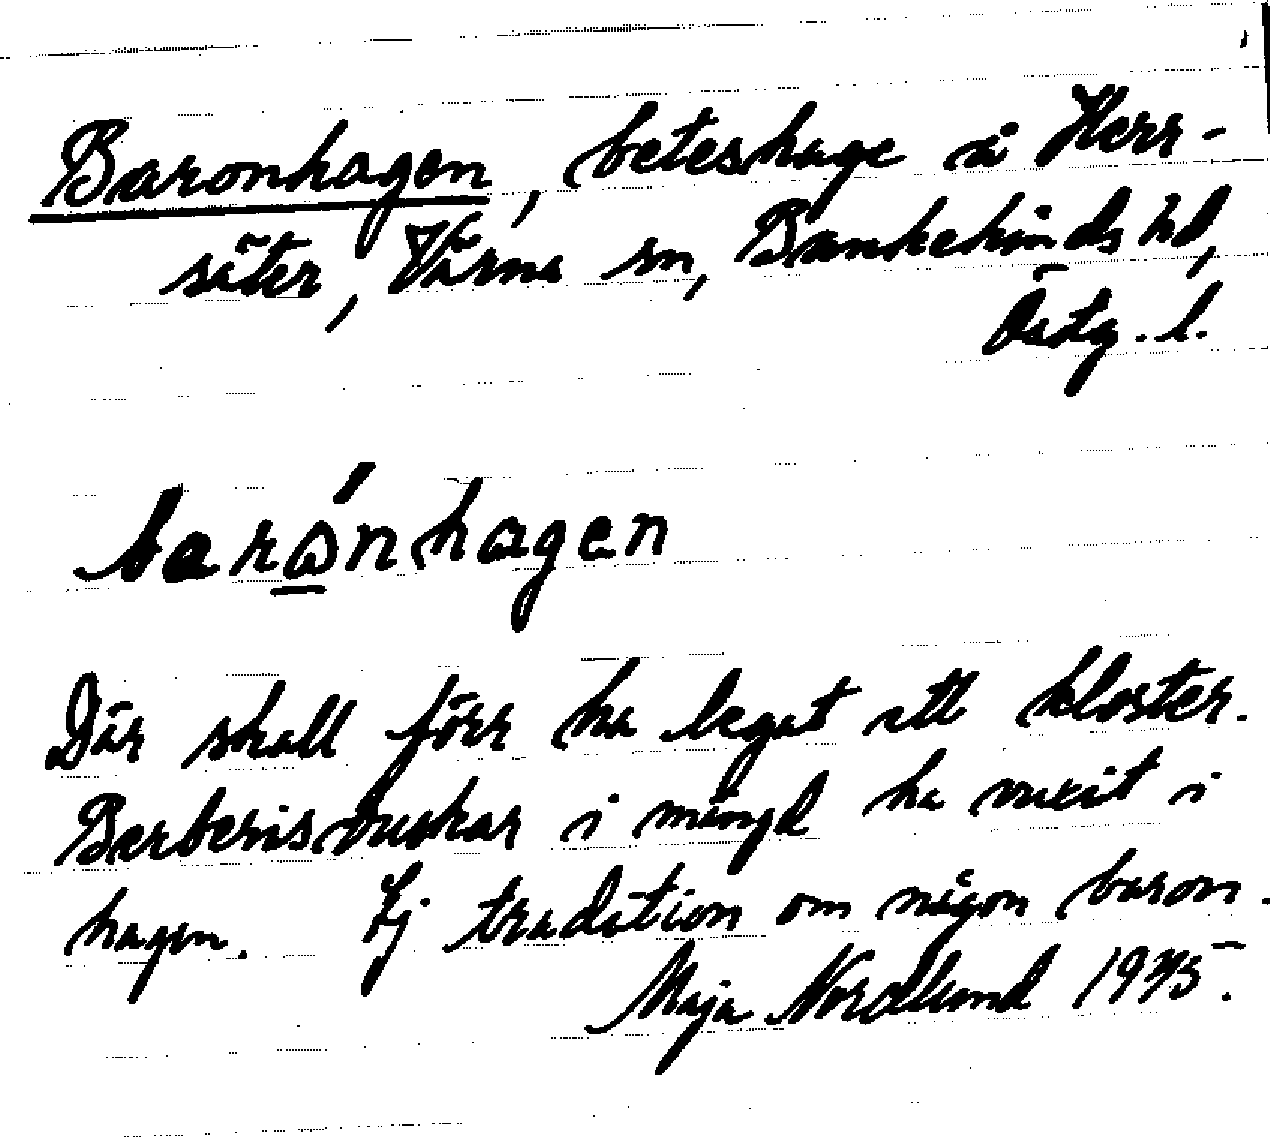 Baronhagen, beteshage å Herr-
säter, Värna sn, Bankekinds hd,
Östg. l.
barónhagen
Där skall förr ha legat ett kloster.
Berberisbuskar i mängd ha vuxit i
hagen. Ej tradition om någon baron.
Maja Nordlund